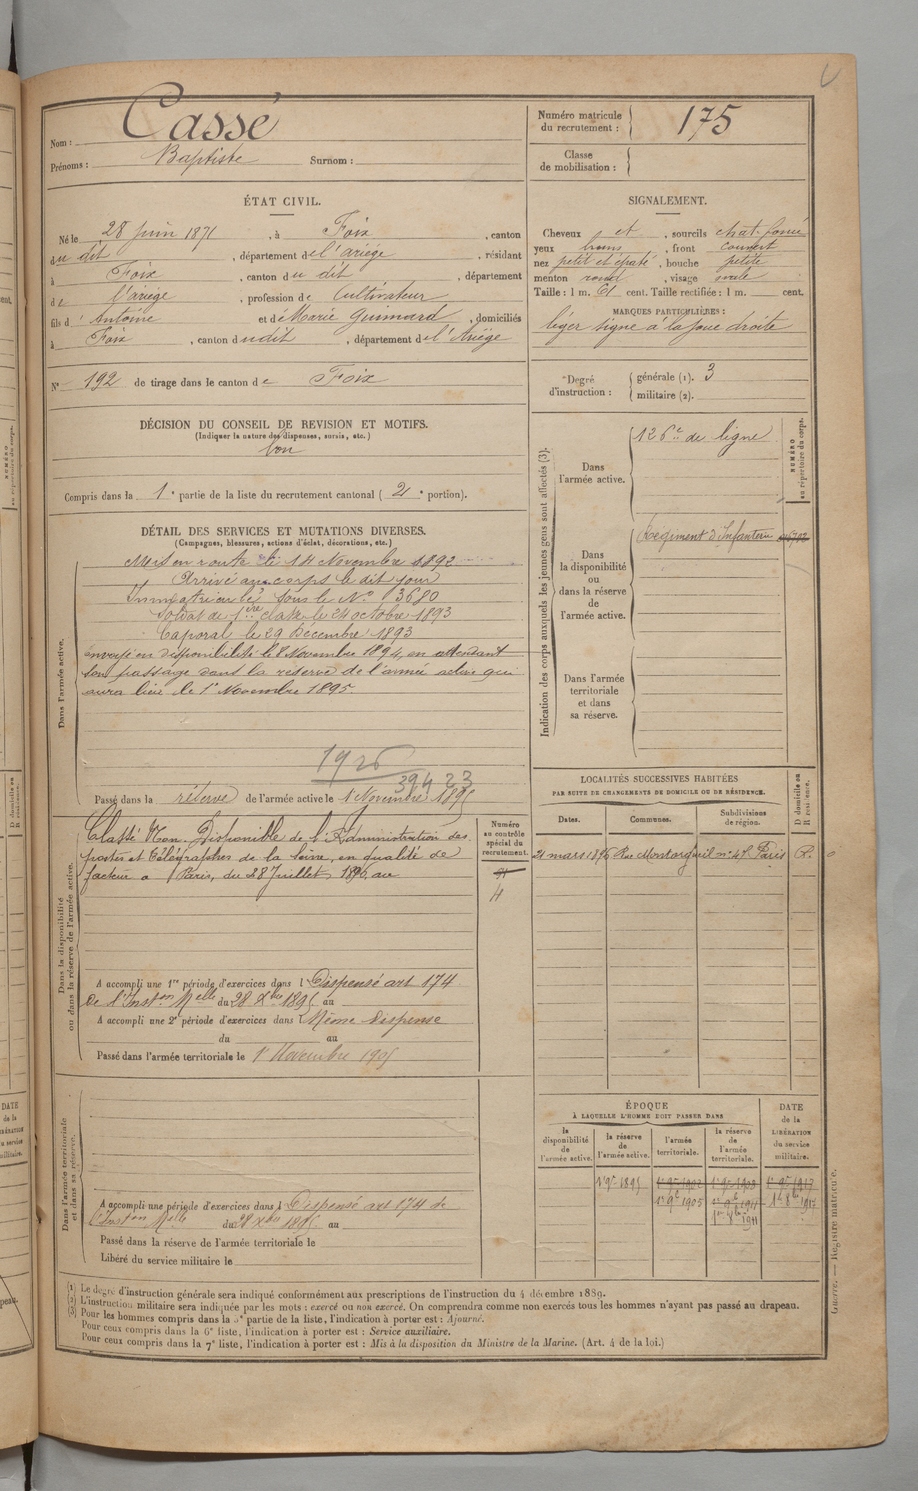 Nom : Cassé
Prénoms : Baptiste Surnom :
Numéro matricule du recrutement : 175
Classe de mobilisation :
ÉTAT CIVIL.
Né le 28 juin 1871, à Foix, canton
du dit, département de l'ariège, résidant
à Foix, canton du dit, département
de l'ariège, profession de Cultivateur
fils d' Antoine et de Marie Guimard, domiciliés
à Foix, canton dudit, département de l'Ariège
N° 192 de tirage dans le canton de Foix
SIGNALEMENT.
Cheveux et, sourcils chat. foncé
yeux bruns, front couvert
nez petit et épaté, bouche petite
menton rond, visage ovale
Taille : 1 m. 61 cent. Taille rectifiée : 1 m. cent.
MARQUES PARTICULIÈRES :
léger signe à la joue droite
Degré d'instruction : générale (1). 3
militaire (2).
DÉCISION DU CONSEIL DE REVISION ET MOTIFS.
(Indiquer la nature des dispenses, sursis, etc.)
bon
Compris dans la 1e partie de la liste du recrutement cantonal (2e portion).
DÉTAIL DES SERVICES ET MUTATIONS DIVERSES.
(Campagnes, blessures, actions d'éclat, décorations, etc.)
Dans l'armée active.
Mis en route le 14 Novembre 1892
Arrivé au corps le dit jour
Immatriculé sous le N° 3680
Soldat de 1ère classe le 24 octobre 1893
Caporal le 29 Décembre 1893
envoyé en disponibilité le 8 Novembre 1894, en attendant
son passage dans la réserve de l'armée active qui
aura lieu le 1er Novembre 1895
1926
394 23
Passé dans la réserve de l'armée active le 1 Novembre 1895
Indication des corps auxquels les jeunes gens sont affectés (3).
Dans l'armée active. 126e de ligne
Dans la disponibilité ou dans la réserve de l'armée active. Régiment d'Infanterie
Dans l'armée territoriale et dans sa réserve.
NUMÉRO au répertoire du corps.
Dans la disponibilité ou dans la réserve de l'armée active.
Classé Non-Disponible de l'Administration des
postes et Télégraphes de la Seine, en qualité de
facteur à Paris, du 28 Juillet 1896 au
Numéro au contrôle spécial du recrutement.
4
A accompli une 1re période d'exercices dans l Dispensé art 174
de l'Inston Melle du 28 Xbre 1895 au
A accompli une 2e période d'exercices dans l Même dispense
du au
Passé dans l'armée territoriale le 1er Novembre 1905
LOCALITÉS SUCCESSIVES HABITÉES
PAR SUITE DE CHANGEMENTS DE DOMICILE OU DE RÉSIDENCE.
Dates. Communes. Subdivisions de région. D domicile ou R résidence.
21 mars 1896 Rue Montorgueil n° 47 Paris R.
Dans l'armée territoriale et dans sa réserve.
A accompli une période d'exercices dans l Dispensé art 174 de
l'Inston Melle du 28 Xbre 1895 au
Passé dans la réserve de l'armée territoriale le
Libéré du service militaire le
ÉPOQUE
À LAQUELLE L'HOMME DOIT PASSER DANS
la disponibilité de l'armée active. la réserve de l'armée active. l'armée territoriale. la réserve de l'armée territoriale. DATE de la LIBÉRATION du service militaire.
1er 9e 1895
1er 9e 1905
1er 8bre 1911
(1) Le degré d'instruction générale sera indiqué conformément aux prescriptions de l'instruction du 4 décembre 1889.
(2) L'instruction militaire sera indiquée par les mots : exercé ou non exercé. On comprendra comme non exercés tous les hommes n'ayant pas passé au drapeau.
(3) Pour les hommes compris dans la 5e partie de la liste, l'indication à porter est : Ajourné.
Pour ceux compris dans la 6e liste, l'indication à porter est : Service auxiliaire.
Pour ceux compris dans la 7e liste, l'indication à porter est : Mis à la disposition du Ministre de la Marine. (Art. 4 de la loi.)
Guerre. — Registre matricule.